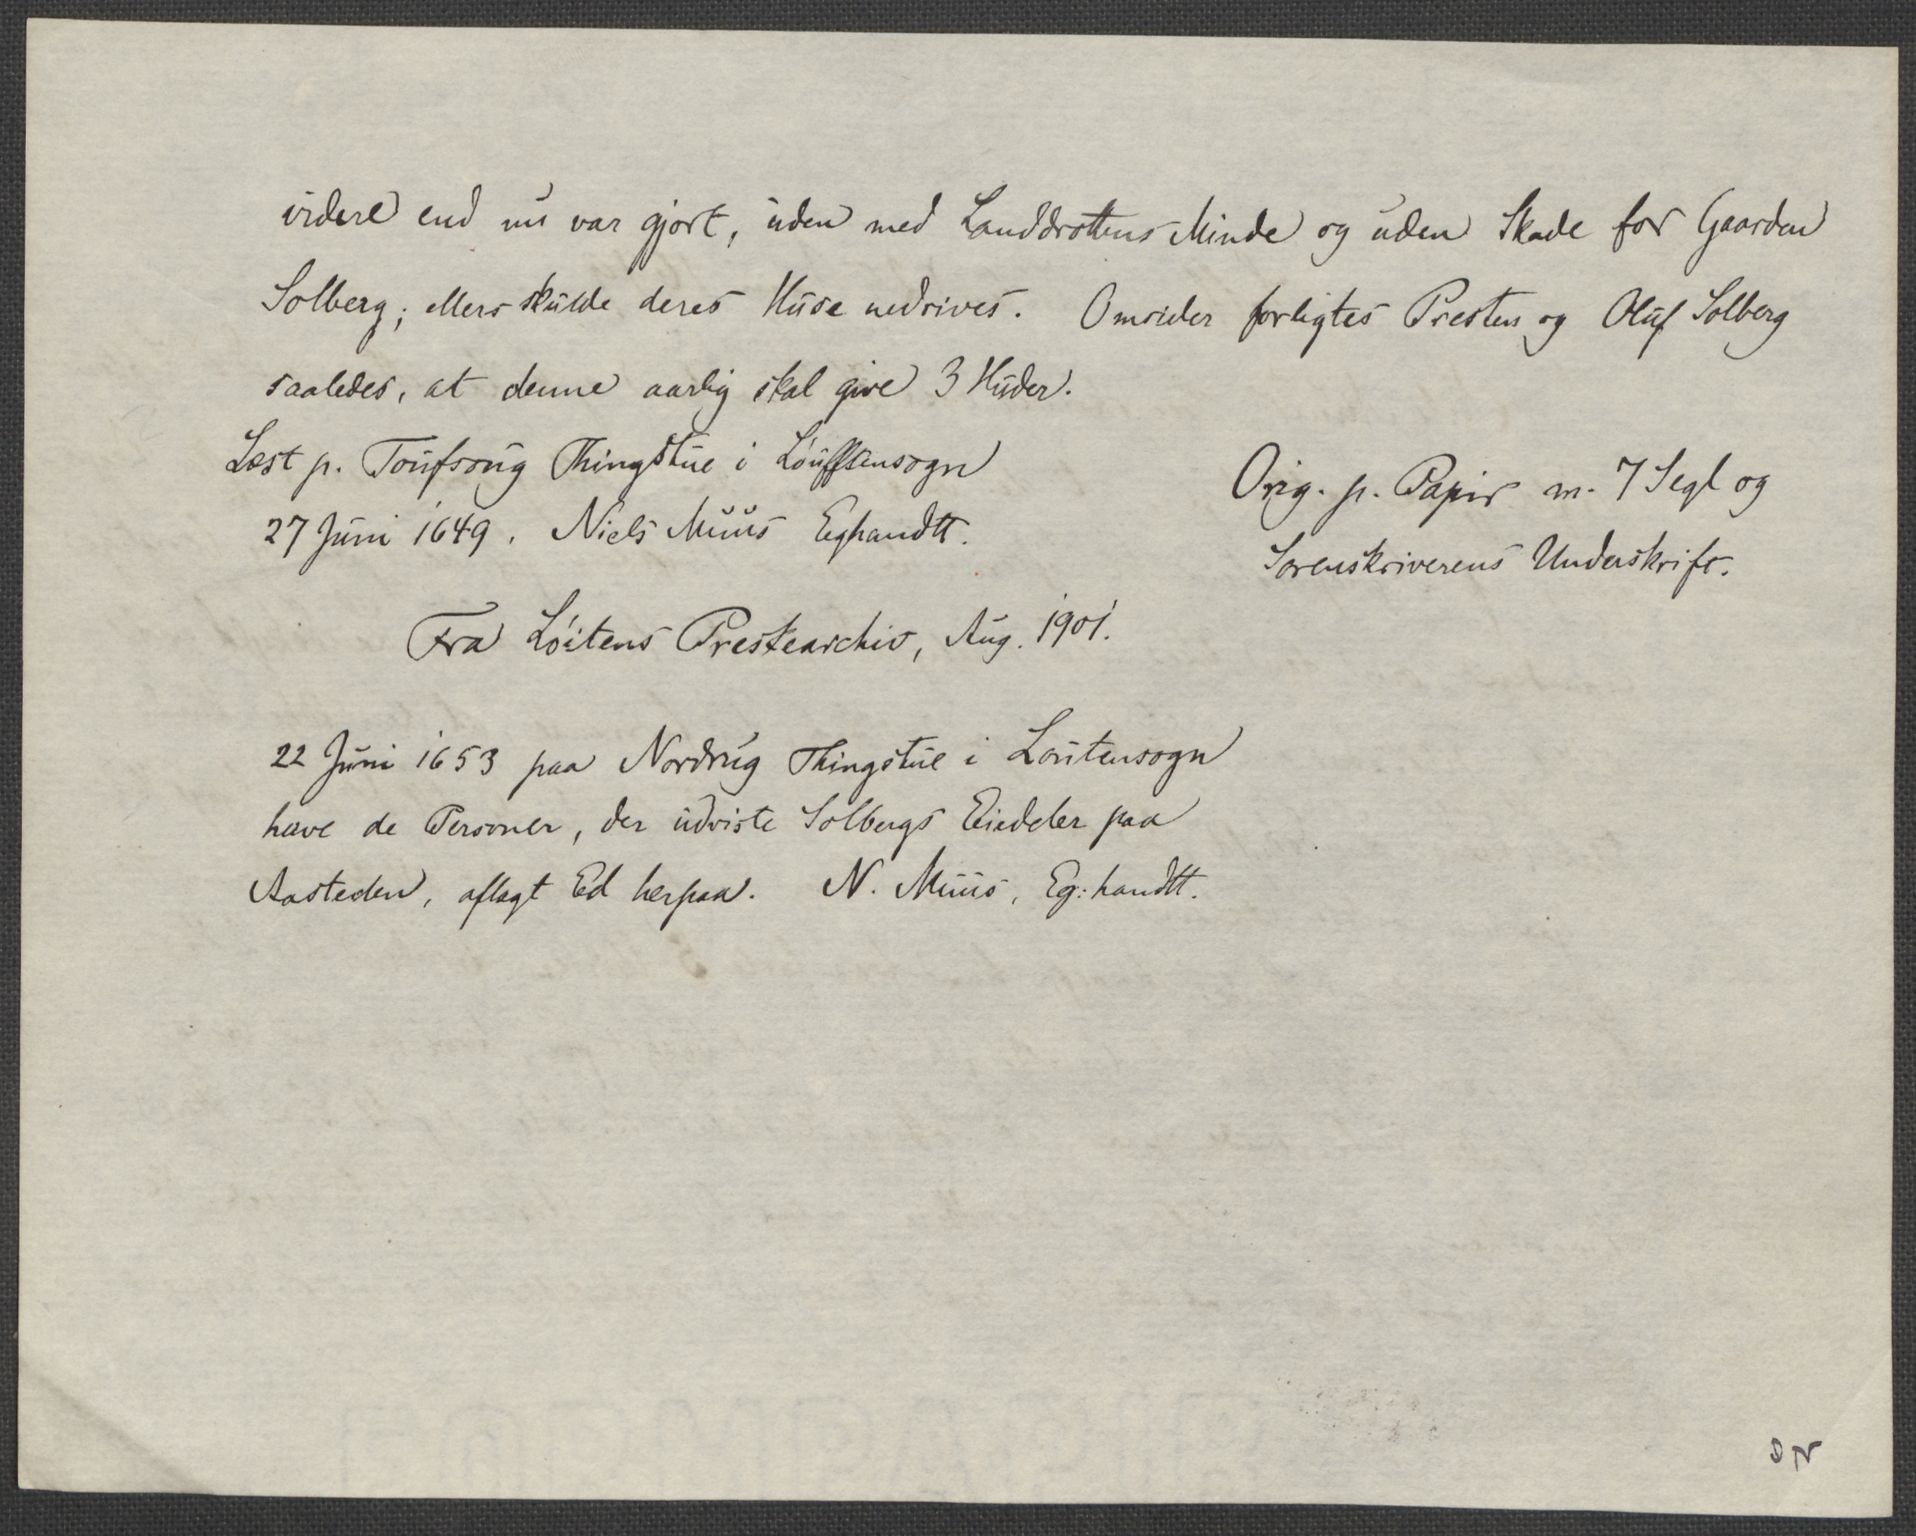 videre end nu var gjort, uden med Landdrottens Minde og uden Skade for Gaarden
Solberg; ellers skulde deres Huse nedrives. Omsider forligtes Presten og Oluf Solberg
saaledes, at denne aarlig skal give 3 Huder.
Læst p. Toufsrug Thingstue i Løufftensogn
27 Juni 1649. Niels Muus Eghandtt.
Orig. p. Papir m. 7 Segl og
Sorenskriverens Underskrift.
Fra Løitens Prestearchiv, Aug. 1901.
22 Juni 1653 paa Nordrug Thingstue i Løutensogn
have de Personer, der udviste Solbergs Eiedeler paa
Aasteden, aflagt Ed herpaa. N. Muus, Eg: handtt.
DN